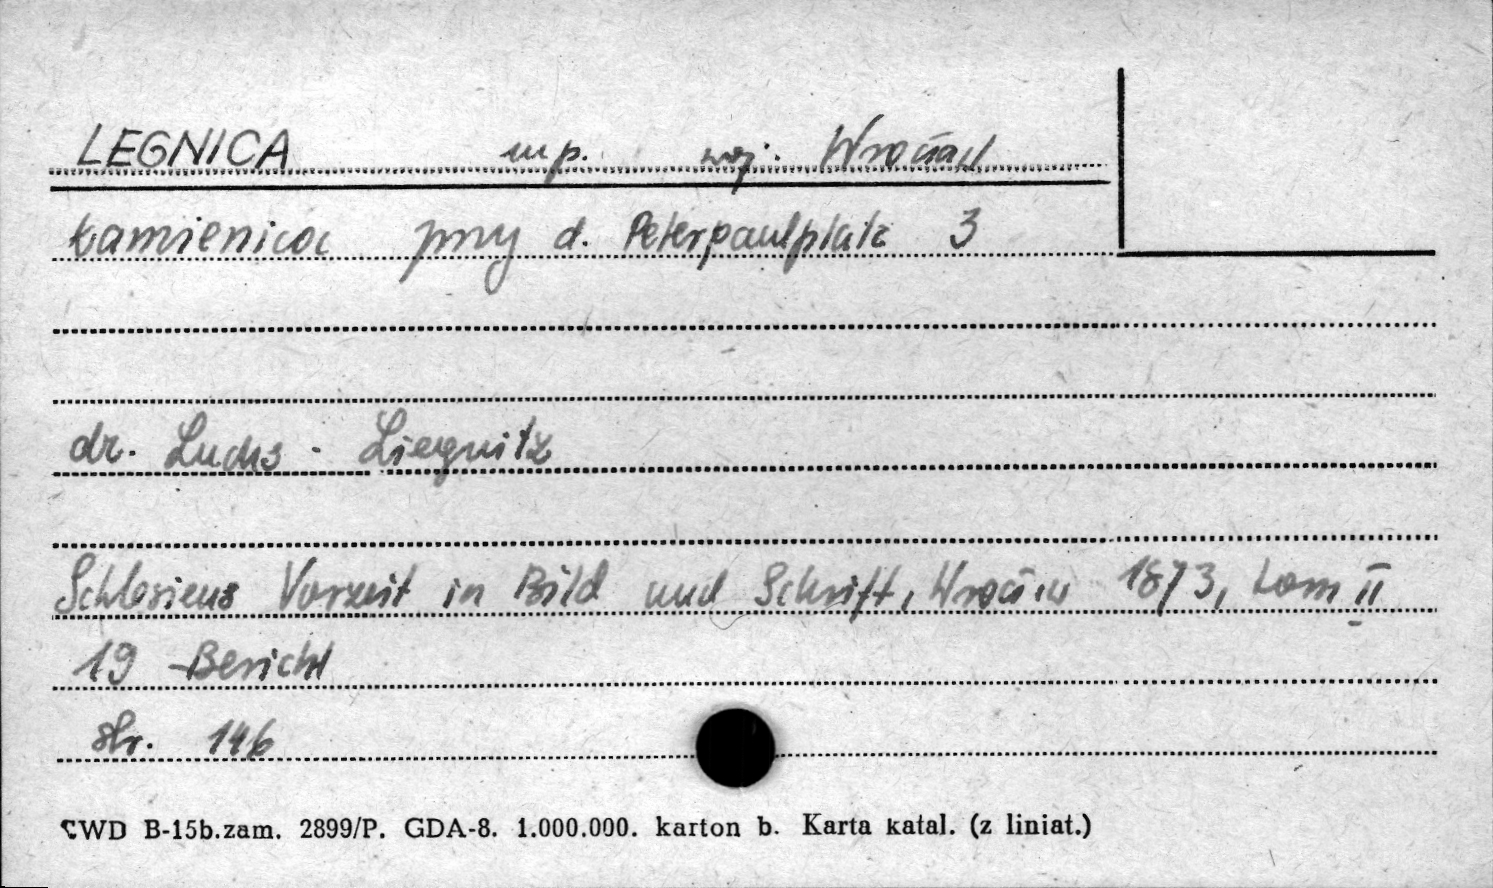 LEGNICA mp. woj. Wrocław
kamienica przy d. Peterpaulplatz 3
dr. Luchs - Liegnitz
Schlesiens Vorzeit in Bild und Schrift, Wrocław 1873, tom II
19 Bericht
str. 146
CWD B-15b.zam. 2899/P. GDA-8. 1.000.000. karton b. Karta katal. (z liniat.)